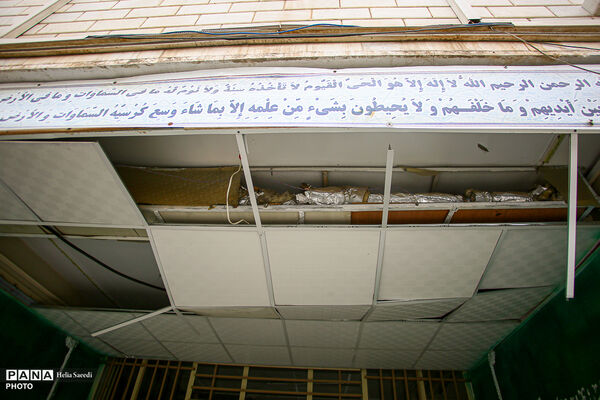 الرحمن الرحيم اللهُ لا إِلهَ إِلاَّ هُوَ الْحَيُّ الْقَيُّومُ لاَ تَأْخُذُهُ سِنَةٌ وَلاَ نَوْمٌ لَّهُ مَا فِي السَّمَاوَاتِ وَمَا فِي الأَرْضِ
أَيْدِيهِمْ وَمَا خَلْفَهُمْ وَلاَ يُحِيطُونَ بِشَيْءٍ مِّنْ عِلْمِهِ إِلاَّ بِمَا شَاءَ وَسِعَ كُرْسِيُّهُ السَّمَاوَاتِ وَالأَرْضَ
PANA
PHOTO
Helia Saeedi